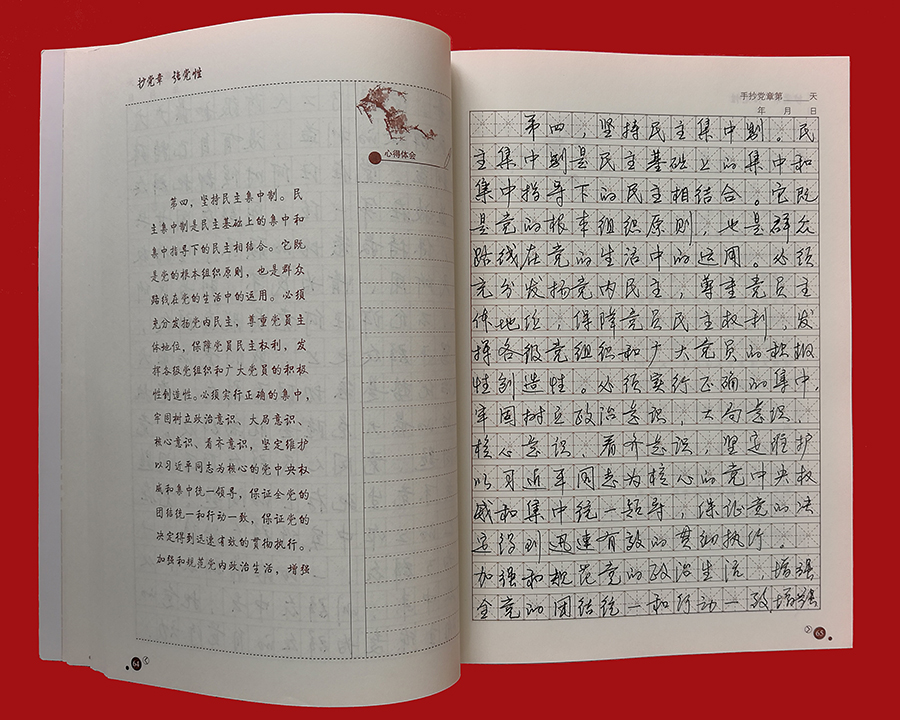 抄党章 强党性
心得体会
第四，坚持民主集中制。民
主集中制是民主基础上的集中和
集中指导下的民主相结合。它既
是党的根本组织原则，也是群众
路线在党的生活中的运用。必须
充分发扬党内民主，尊重党员主
体地位，保障党员民主权利，发
挥各级党组织和广大党员的积极
性创造性。必须实行正确的集中，
牢固树立政治意识、大局意识、
核心意识、看齐意识，坚定维护
以习近平同志为核心的党中央权
威和集中统一领导，保证全党的
团结统一和行动一致，保证党的
决定得到迅速有效的贯彻执行。
加强和规范党内政治生活，增强
64
手抄党章第 天
年 月 日
第四，坚持民主集中制。民
主集中制是民主基础上的集中和
集中指导下的民主相结合。它既
是党的根本组织原则，也是群众
路线在党的生活中的运用。必须
充分发扬党内民主，尊重党员主
体地位，保障党员民主权利，发
挥各级党组织和广大党员的积极
性创造性。必须实行正确的集中，
牢固树立政治意识、大局意识、
核心意识、看齐意识，坚定维护
以习近平同志为核心的党中央权
威和集中统一领导，保证党的决
定得到迅速有效的贯彻执行。
加强和规范党的政治生活，增强
全党的团结统一和行动一致增强
65